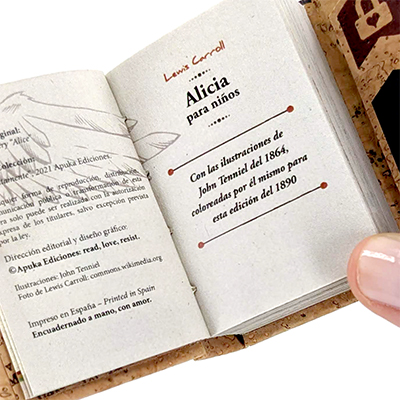 ginal:
ery "Alice"
olección:
2021 Apuka Ediciones.
quier forma de reproducción, distribución,
unicación pública o transformación de esta
ra solo puede ser realizada con la autorización
presa de los titulares, salvo excepción prevista
por la ley.
Dirección editorial y diseño gráfico:
©Apuka Ediciones: read, love, resist.
Ilustraciones: John Tenniel
Foto de Lewis Carroll: commons.wikimedia.org
Impreso en España – Printed in Spain
Encuadernado a mano, con amor.
Lewis Carroll
Alicia
para niños
Con las ilustraciones de
John Tenniel del 1864,
coloreadas por él mismo para
esta edición del 1890